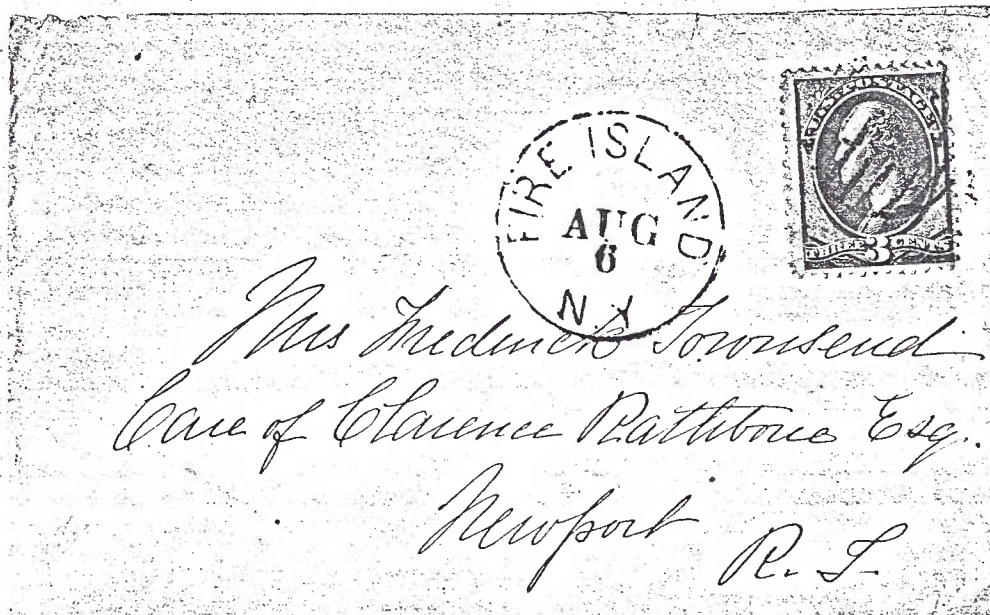 U.S. POSTAGE
FIRE ISLAND
AUG
6
N Y
THREE 3 CENTS
Mrs Frederick Townsend
Care of Clarence Rathbone Esq.
Newport
R. I.